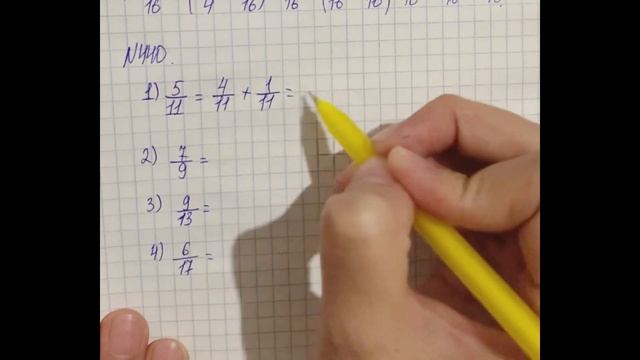 N440.
1) 5/11 = 4/11 + 1/11 =
2) 7/9 =
3) 9/13 =
4) 6/17 =